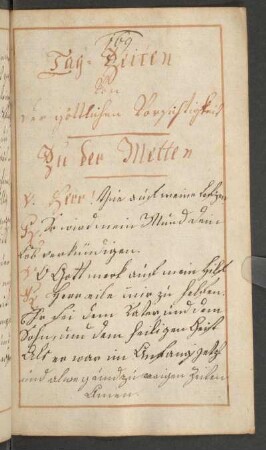 169
Tag-Zeiten
Von
der göttlichen Vorsichtigkeit
Zu der Metten
V. Herr! Thue auf meine Lefzen
R. So wird mein Mund dein
Lob verkündigen.
V. O Gott merk auf mein Hilf
R. Herr eile mir zu helfen.
Ehr sei dem Vater und dem
Sohn, und dem heiligen Geist
Als er war im Anfang jetzt
und alweg und zu ewigen Zeiten
Amen.